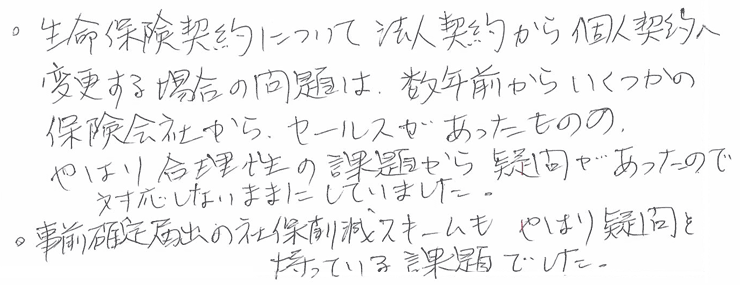 。生命保険契約について 法人契約から個人契約へ
変更する場合の問題は、数年前からいくつかの
保険会社から、セールスがあったものの、
やはり合理性の課題から疑問があったので
対応しないままにしていました。
。事前確定届出の社保削減スキームも やはり疑問を
持っている課題でした。